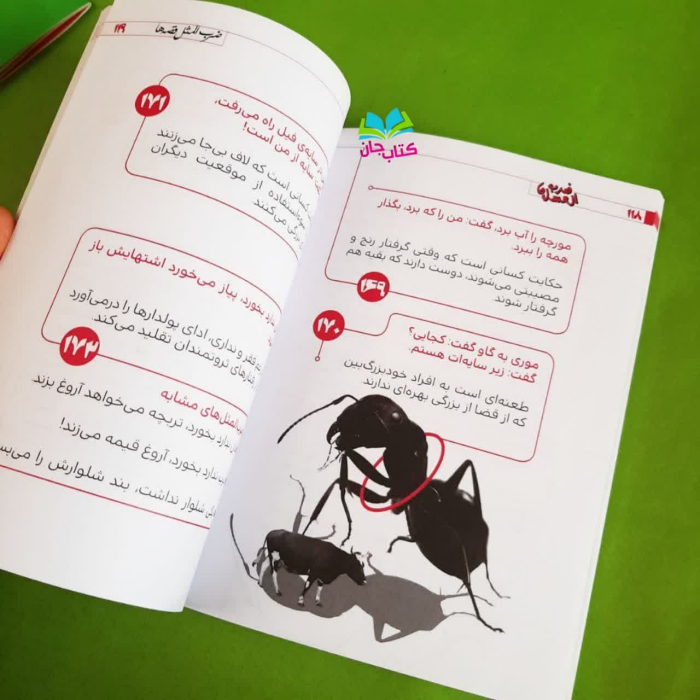 ۱۱۸
ضربه المثل
مورچه را آب برد، گفت: من را که برد، بگذار
همه را ببرد.
حکایت کسانی است که وقتی گرفتار رنج و
مصیبتی می‌شوند، دوست دارند که بقیه هم
گرفتار شوند
۱۶۹
۱۷۰
موری به گاو گفت: کجایی؟
گفت: زیر سایه‌ات هستم.
طعنه‌ای است به افراد خودبزرگ‌بین
که از قضا از بزرگی بهره‌ای ندارند
کتاب جان
ضرب المثل قصه‌ها
۱۱۹
۱۷۱
سایه‌ی فیل راه می‌رفت،
سایه از من است!
کسانی است که لاف بی‌جا می‌زنند
سوءاستفاده از موقعیت دیگران
می‌کنند
ندارد بخورد، پیاز می‌خورد اشتهایش باز
فقر و نداری، ادای پولدارها را درمی‌آورد
ثروتمندان تقلید می‌کند.
۱۷۲
های مشابه
ندارد بخورد، تربچه می‌خواهد آروغ بزند
ندارد بخورد، آروغ قیمه می‌زند!
شلوار نداشت، بند شلوارش را